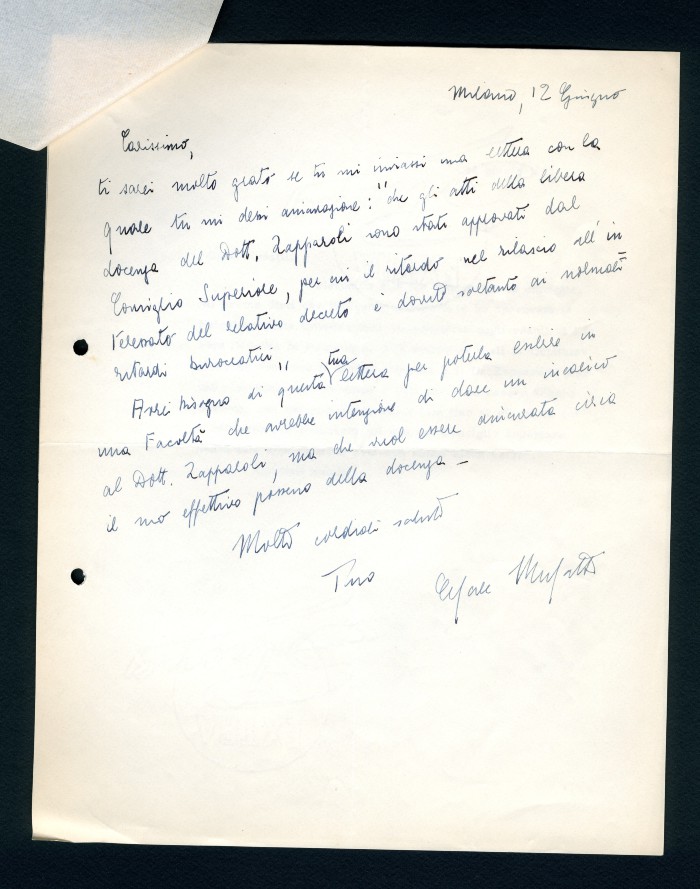 Milano, 12 Giugno
Carissimo,
ti sarei molto grato se tu mi inviassi una lettera con la
quale tu mi dessi assicurazione: "che gli atti della libera
docenza del Dott. Zapparoli sono stati approvati dal
Consiglio Superiore, per cui il ritardo nel rilascio all'in
teressato del relativo decreto è dovuto soltanto ai normali
ritardi burocratici"
Avrei bisogno di questa tua lettera per poterla esibire in
una Facoltà che avrebbe intenzione di dare un incarico
al Dott. Zapparoli, ma che vuol essere assicurata circa
il suo effettivo possesso della docenza —
Molti cordiali saluti
Tuo Cesare Musatti